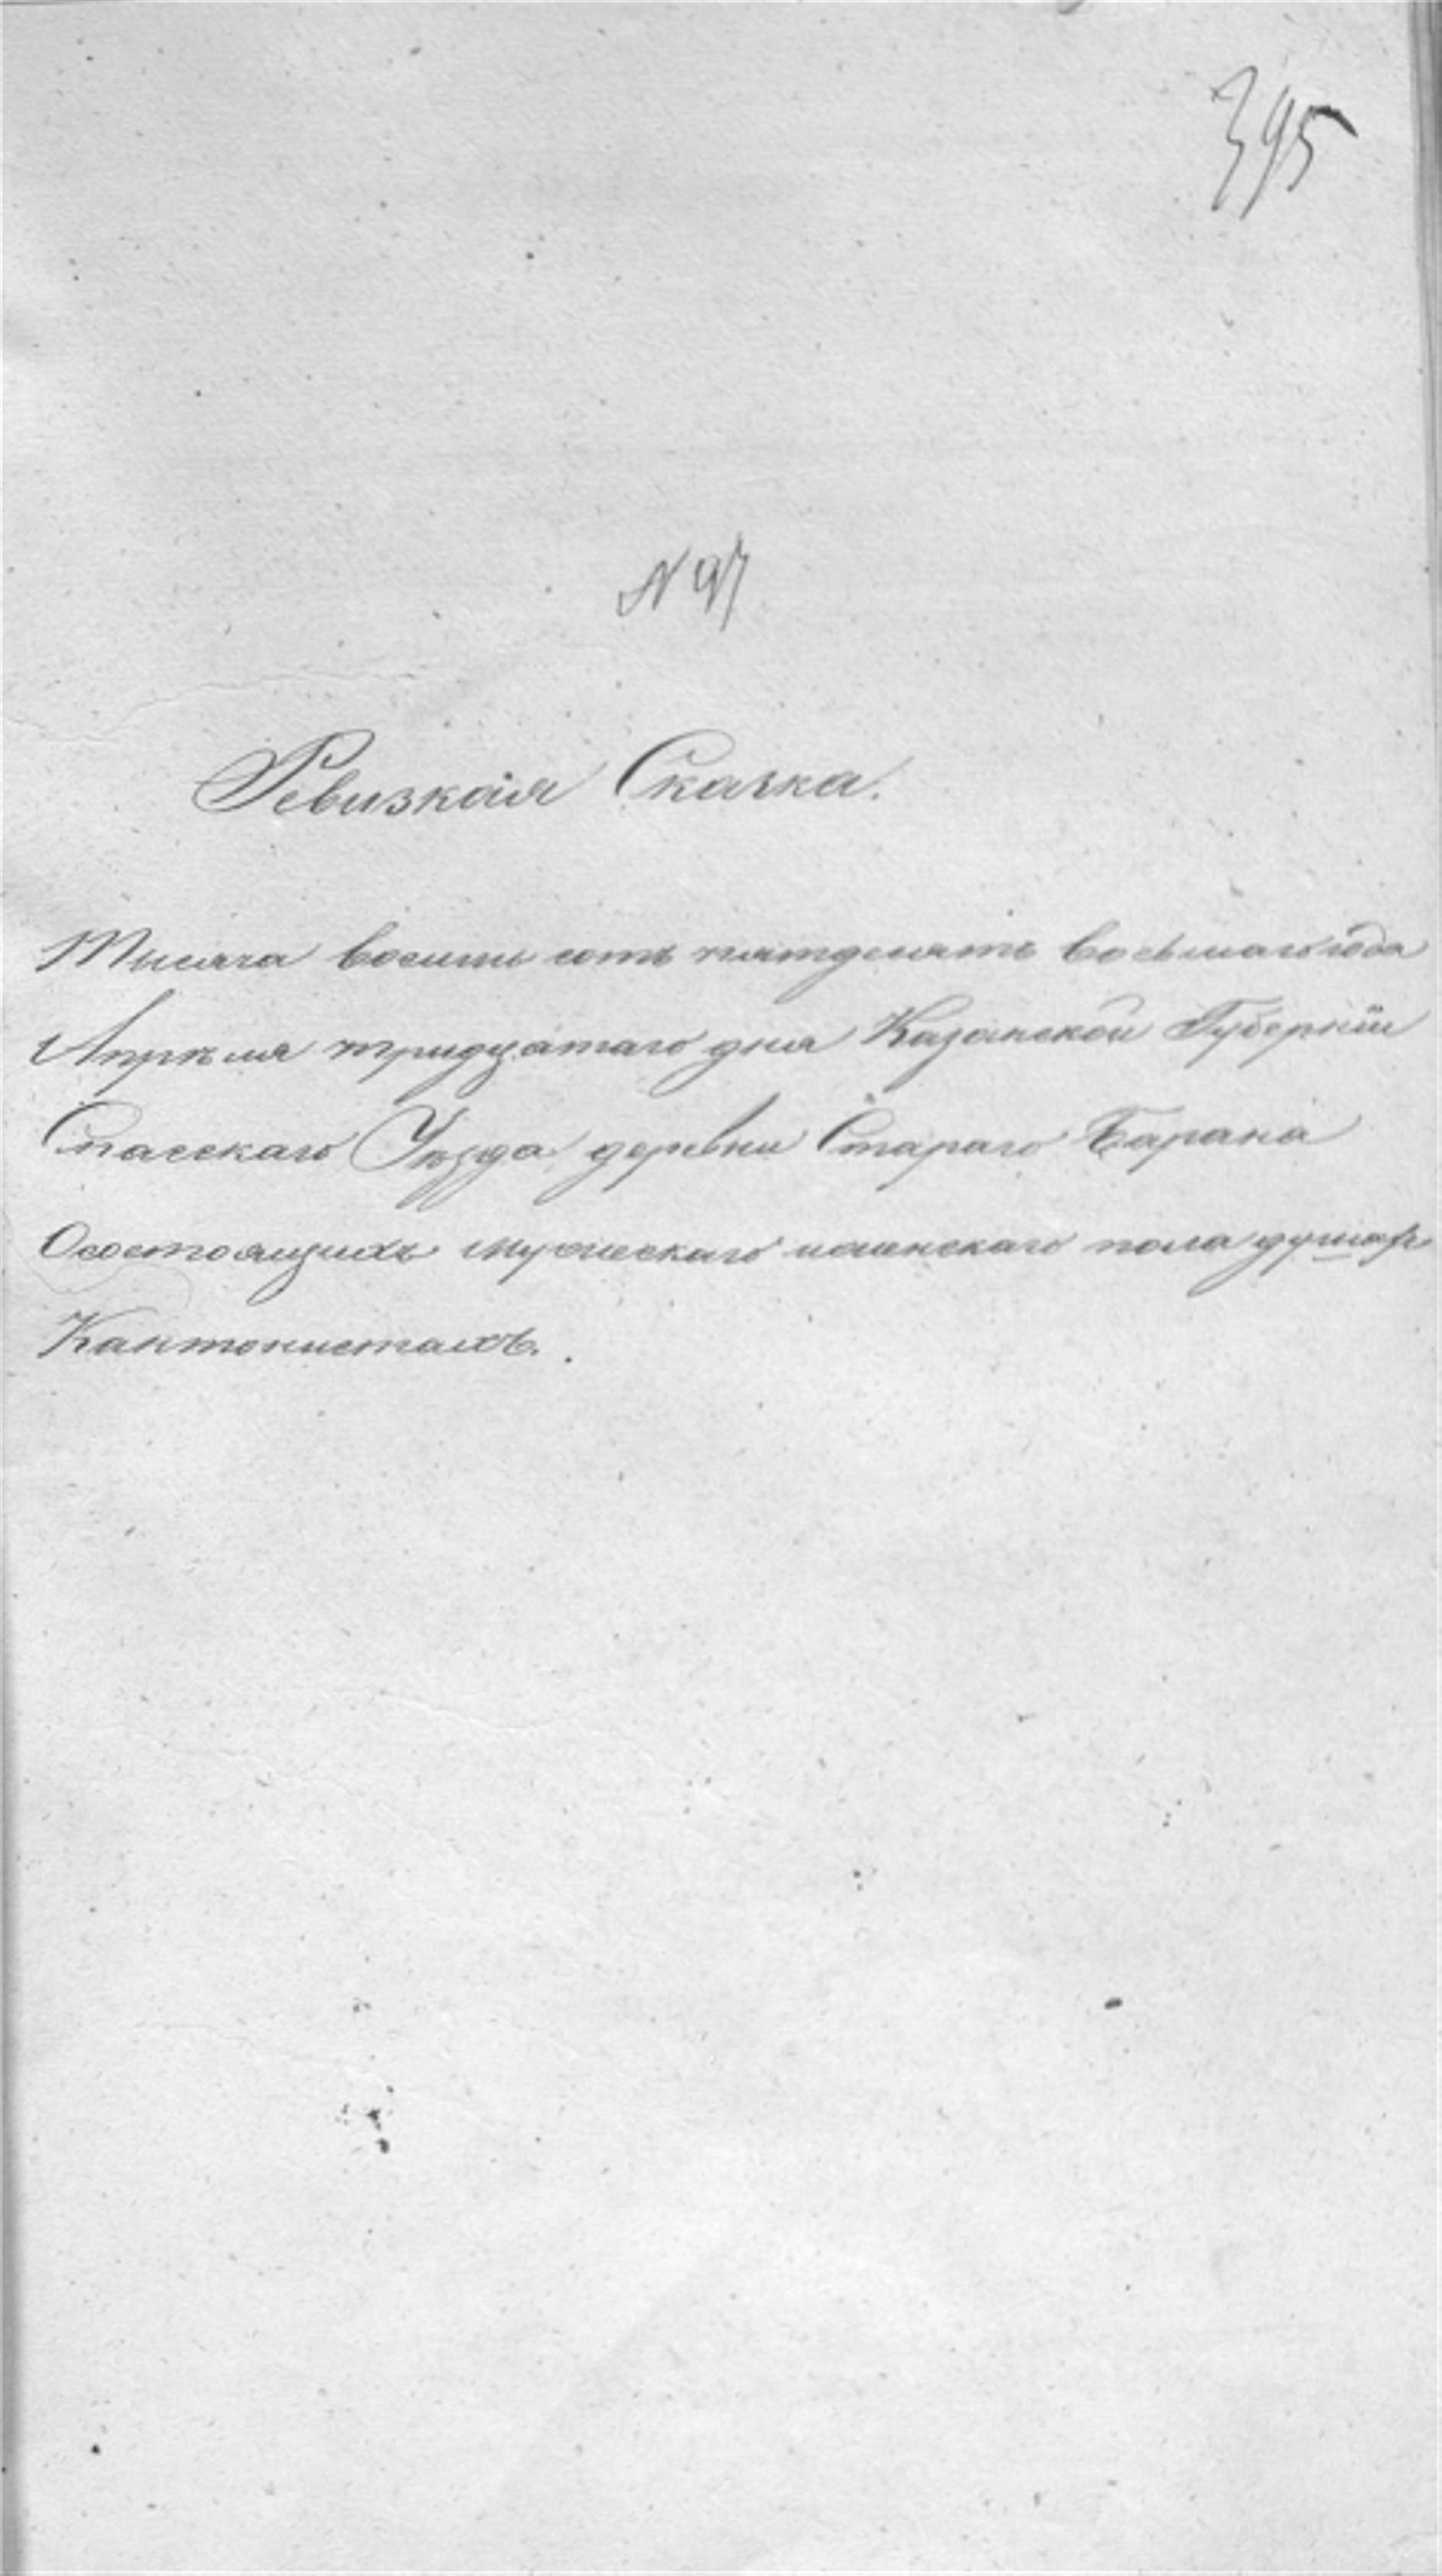 395
N 97
Ревизкая Сказка.
Тысяча восемь сотъ пятдесятъ восьмаго года
Апрѣля тридцатаго дня Казанской Губерніи
Спасскаго Уѣзда деревни Стараго Барана
Осостоящихъ мужескаго иженскаго пола душах
Кантонистахъ.